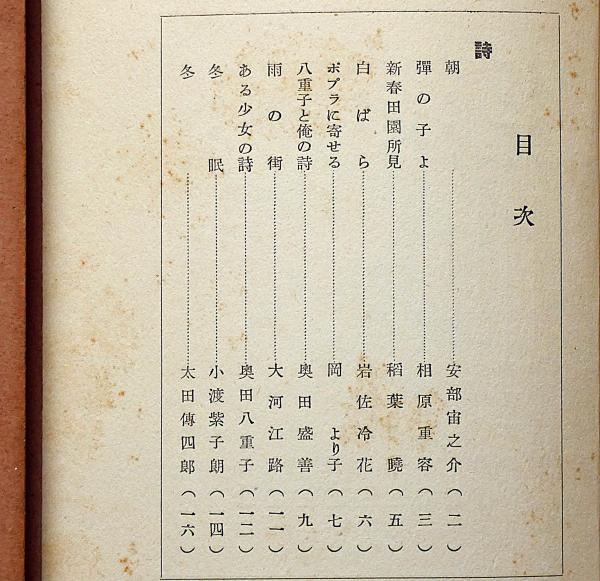 目次
詩
朝……安部宙之介(二)
彈の子よ……相原重容(三)
新春田園所見……稻葉曉(五)
白ばら……岩佐冷花(六)
ポプラに寄せる……岡より子(七)
八重子と俺の詩……奥田盛善(九)
雨の街……大河江路(一一)
ある少女の詩……奥田八重子(一二)
冬眠……小渡紫子朗(一四)
冬……太田傳四郎(一六)